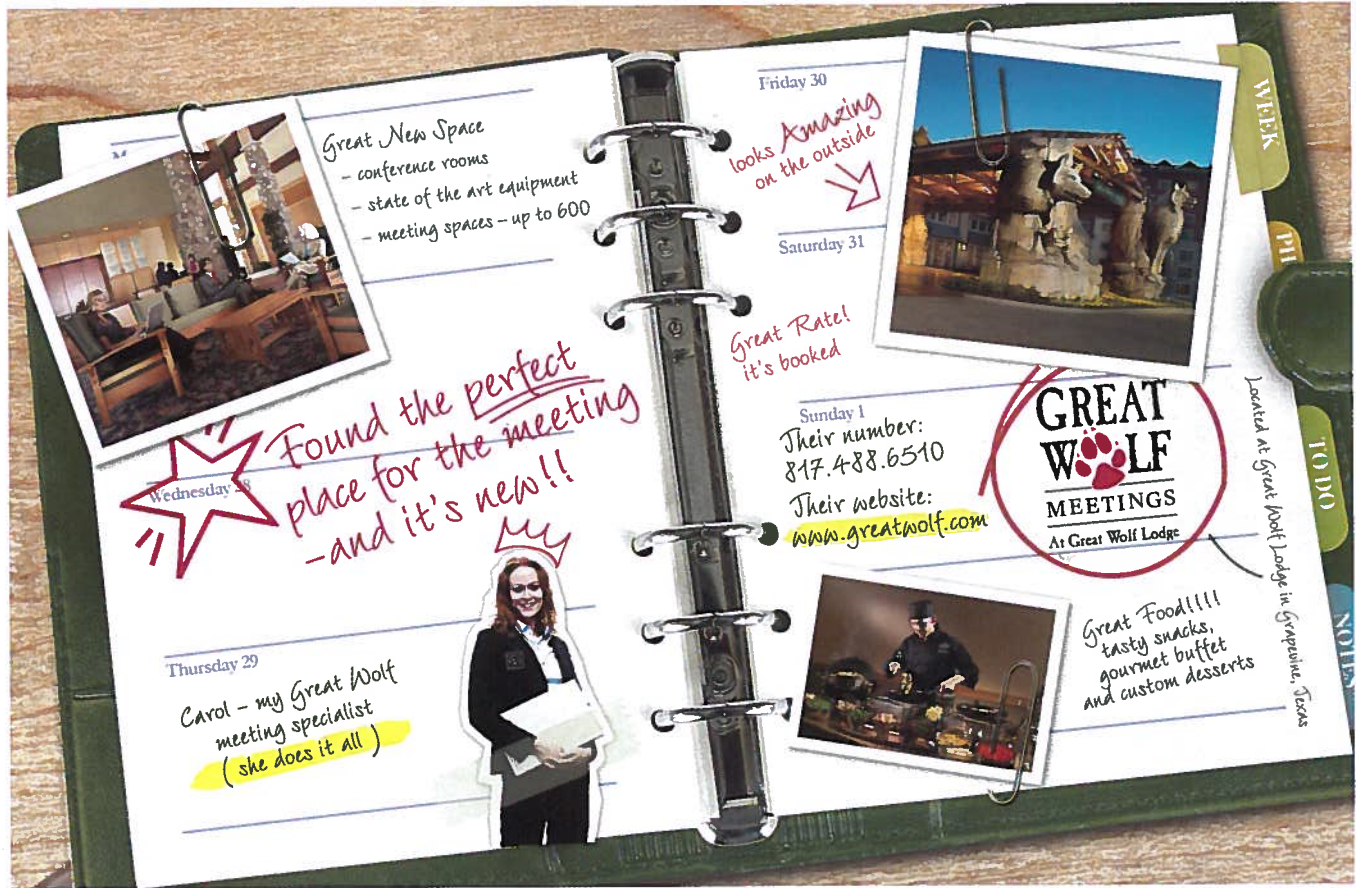 Great New Space
- conference rooms
- state of the art equipment
- meeting spaces – up to 600
Found the perfect
place for the meeting
–and it's new!!
Wednesday 28
Thursday 29
Carol – my Great Wolf
meeting specialist
( she does it all )
Friday 30
looks Amazing
on the outside
Saturday 31
Great Rate!
it's booked
Sunday 1
Their number:
817.488.6510
Their website:
www.greatwolf.com
GREAT
WOLF
MEETINGS
At Great Wolf Lodge
Located at Great Wolf Lodge in Grapevine, Texas
Great Food!!!!
tasty snacks,
gourmet buffet
and custom desserts
WEEK
PH
TO DO
NOTES